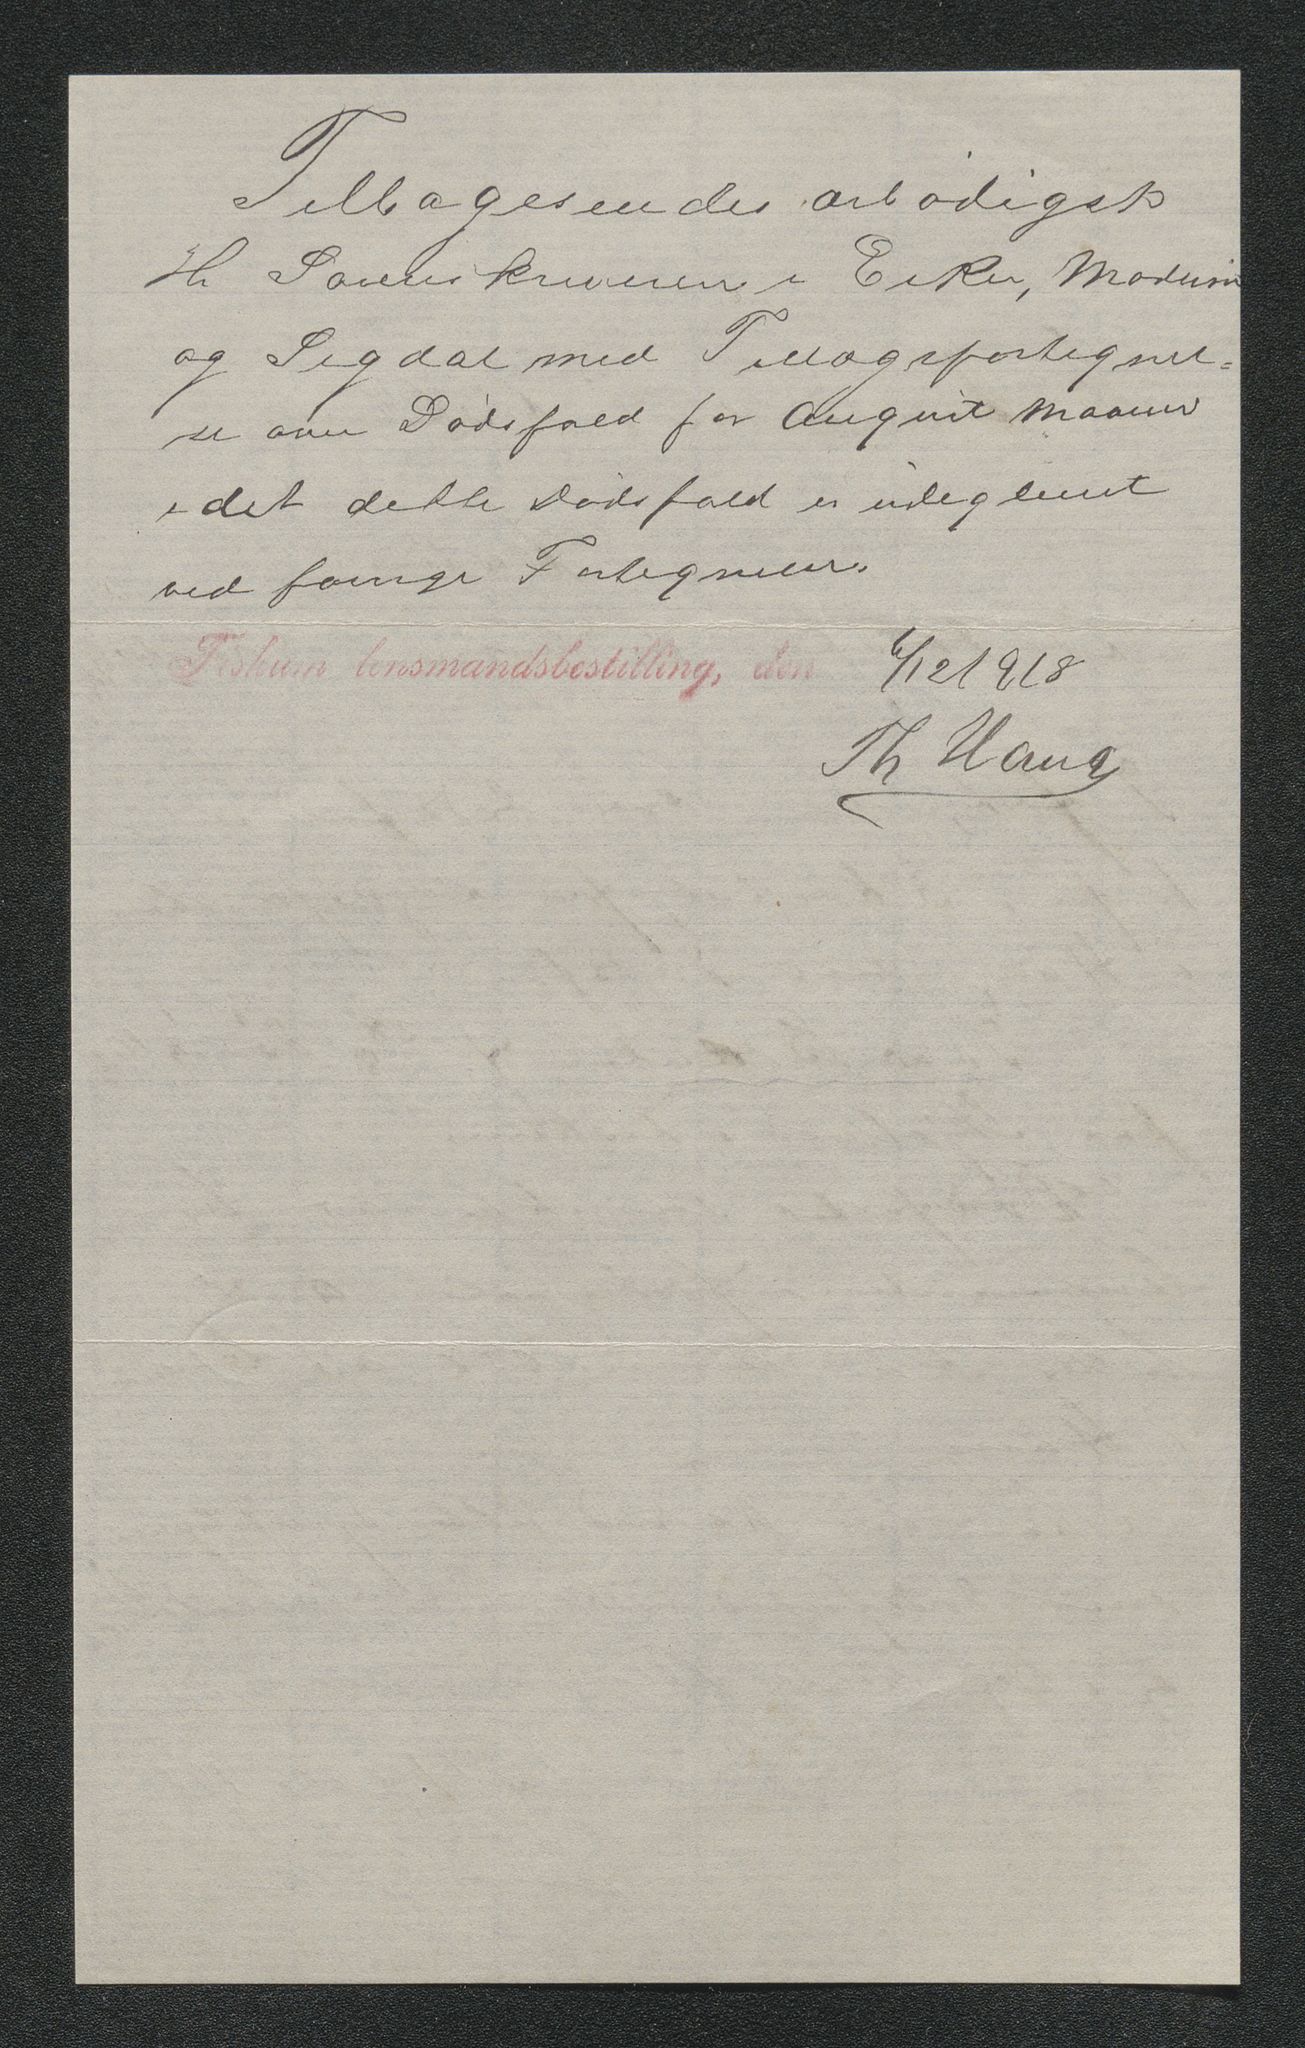 Tilbagesendes ærbødigst
Hr Sorenskriveren i Eiker, Modum
og Sigdal med Tillægsfortegnel=
se over Dødsfald for August Maaned
idet dette Dødsfald er uteglemt
ved forrige Fortegnelse.
Fiskum lensmandsbestilling, den 6/12 1918
Th Haug